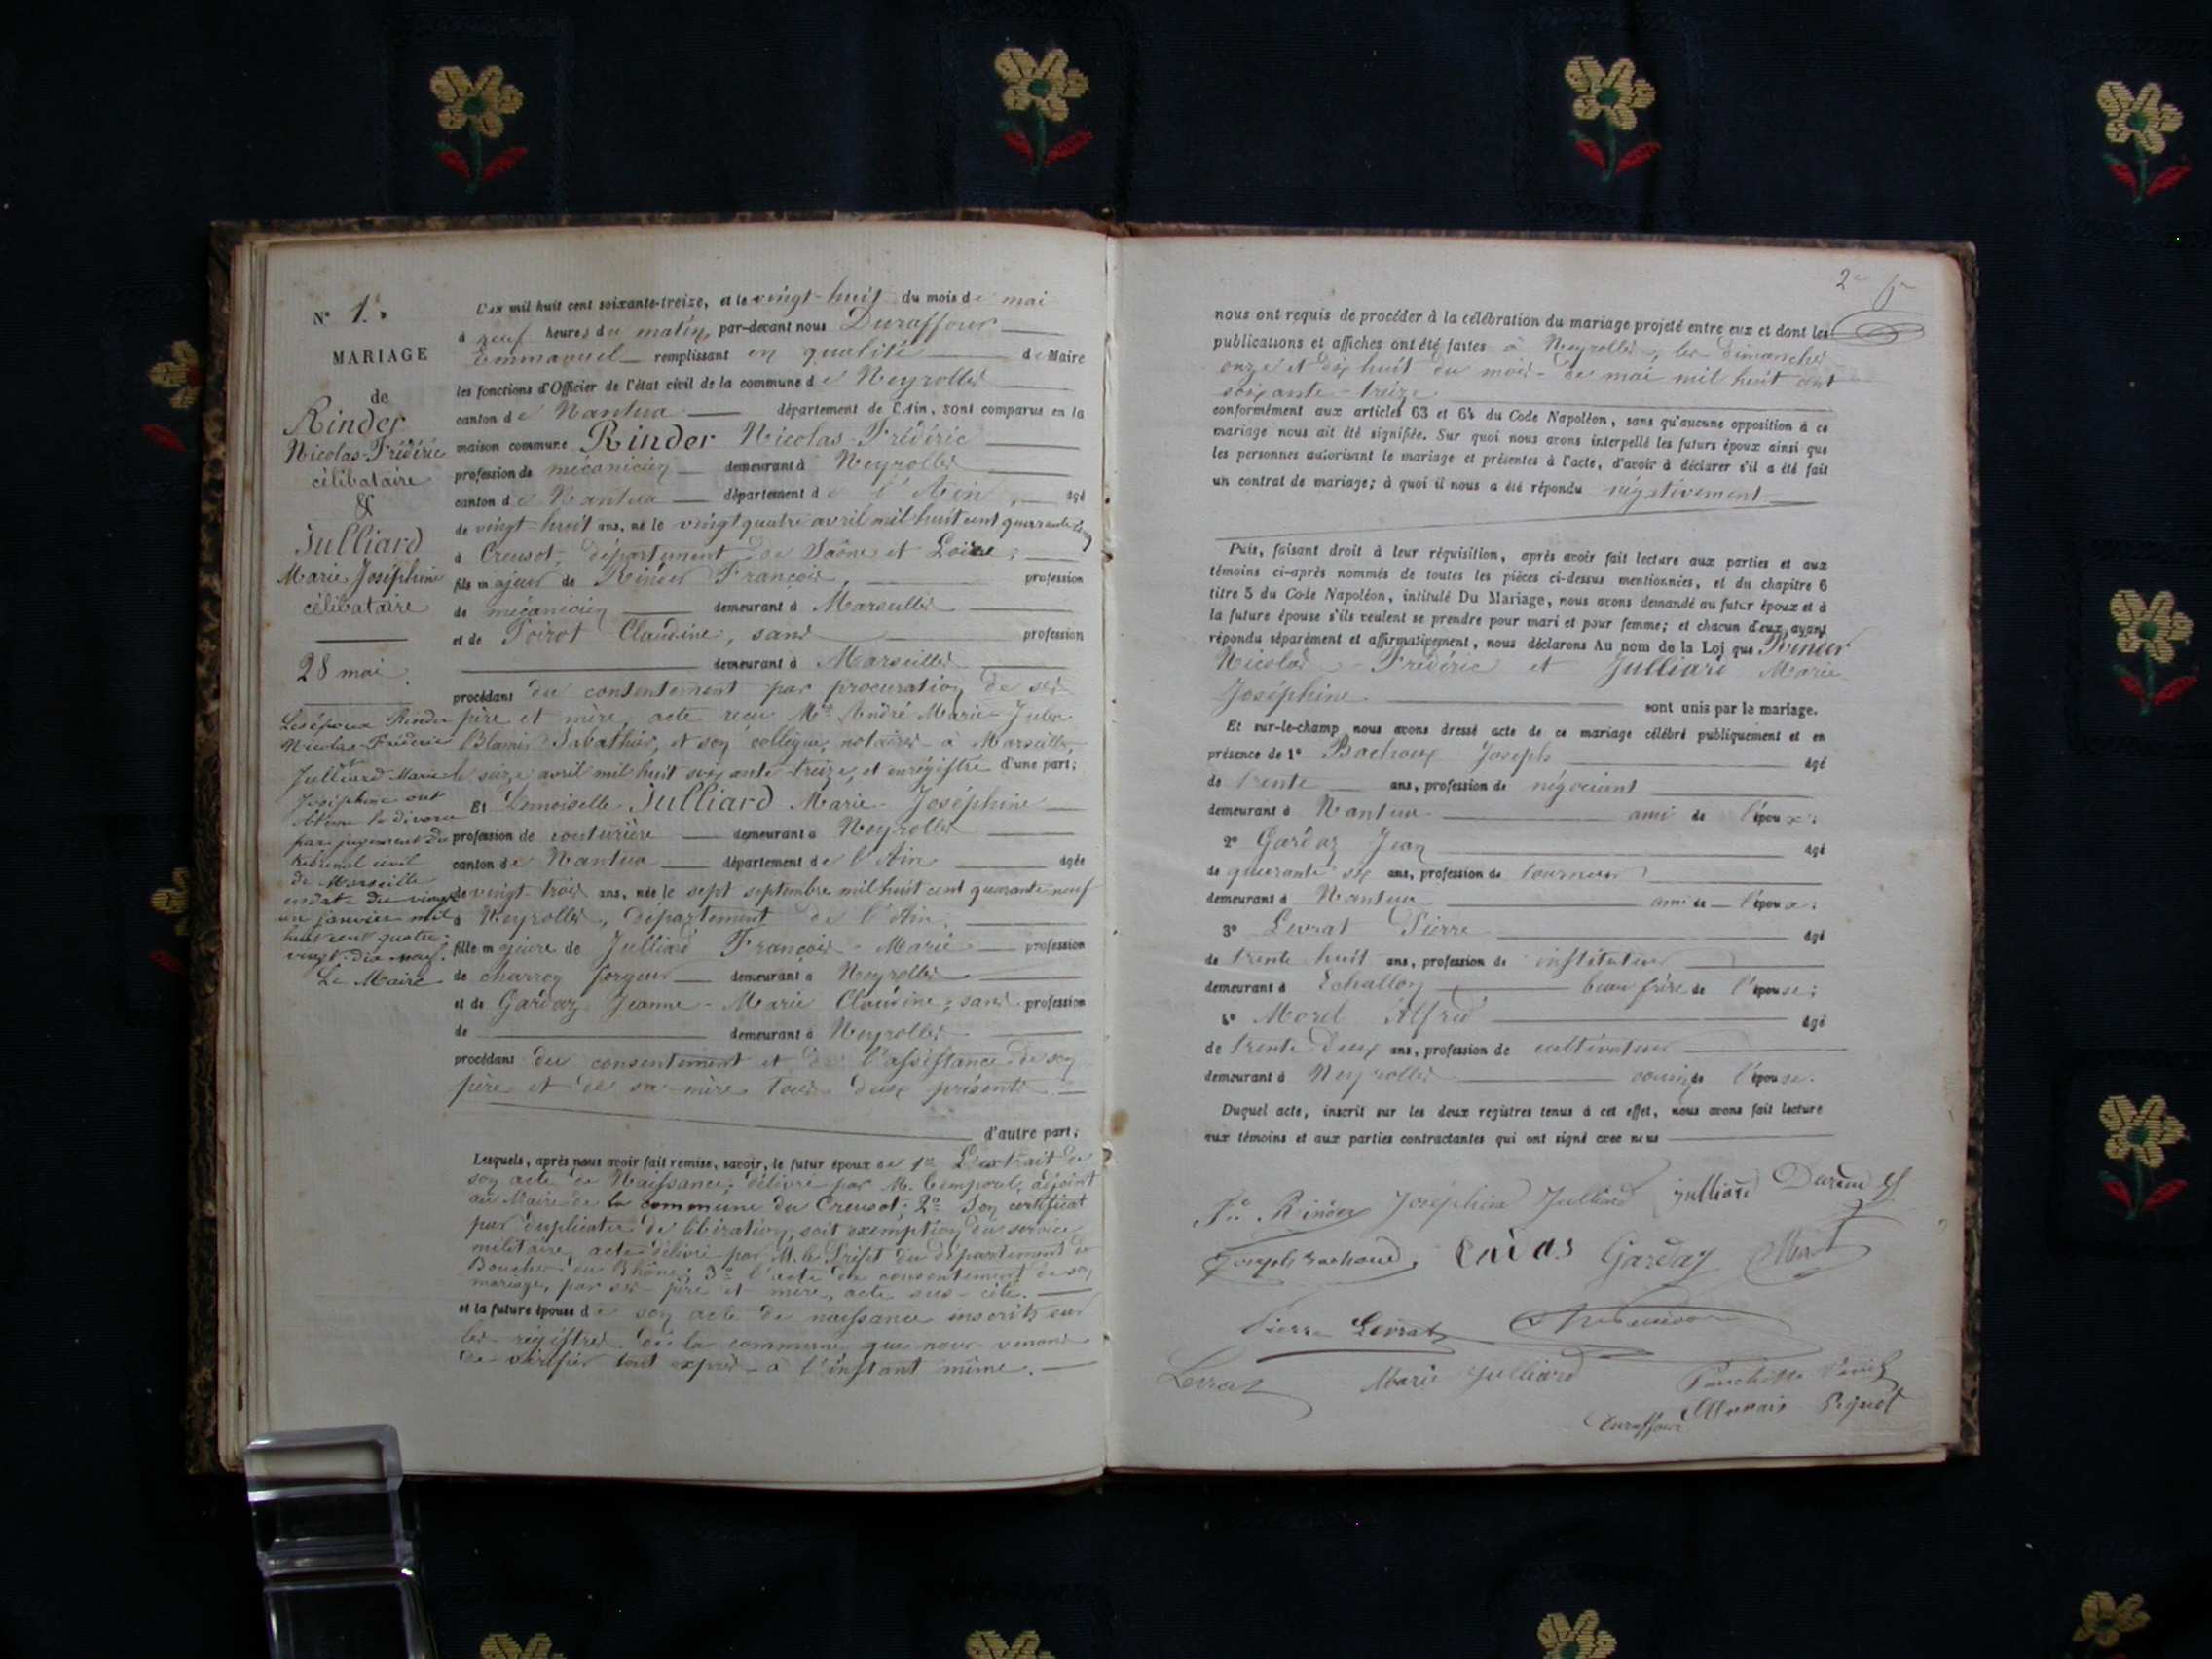 N° 1.
MARIAGE
de
Rinder
Nicolas-Frédéric
célibataire
&
Julliard
Marie Joséphine
célibataire
28 mai
Les époux Rinder
Nicolas-Frédéric
Julliard Marie
Joséphine ont
obtenu le divorce
par jugement du
tribunal civil
de Marseille
en date du vingt
un janvier mil
huit cent quatre-
vingt-dix neuf.
Le Maire
L'AN mil huit cent soixante-treize, et le vingt-huit du mois de mai
à neuf heures du matin, par-devant nous Duraffour
Emmanuel remplissant en qualité de Maire
les fonctions d'Officier de l'état civil de la commune de Neyrolles
canton de Nantua département de l'Ain, sont comparus en la
maison commune Rinder Nicolas-Frédéric
profession de mécanicien demeurant à Neyrolles
canton de Nantua département de l'Ain, âgé
de vingt-huit ans, né le vingt quatre avril mil huit cent quarante cinq
à Creusot, département de Saône et Loire;
fils majeur de Rinder François, profession
de mécanicien demeurant à Marseilles
et de Poirot Claudine, sans profession
demeurant à Marseilles
procédant du consentement par procuration de ses
père et mère, acte recu Me André Marie-Jules
Sabathier, et son collègue, notaires à Marseille,
le seize avril mil huit soixante treize, et enrégistré d'une part;
Et Demoiselle Julliard Marie-Joséphine
profession de couturière demeurant à Neyrolles
canton de Nantua département de l'Ain âgée
de vingt trois ans, née le sept septembre mil huit cent quarante-neuf
à Neyrolles, département de l'Ain,
fille majeure de Julliard François-Marie profession
de charron forgeur demeurant à Neyrolles
et de Gardaz Jeanne-Marie Claudine, sans profession
de demeurant à Neyrolles
procédant du consentement et de l'assistance de son
père et de sa mère tous deux présents.
d'autre part;
Lesquels, après nous avoir fait remise, savoir, le futur époux de 1° L'extrait de
son acte de Naissance; délivré par M. Temporal, adjoint
au Maire de la commune du Creusot; 2° Son certificat
par duplicata de libération, soit exemption du service
militaire, acte délivré par M. le Préfet du département des
Bouches du Rhône; 3° l'acte de consentement de son
mariage, par ses père et mère, acte sus-cité.
et la future épouse de son acte de naissance inscrit sur
les régistres de la commune que nous venons
de vérifier tout exprès à l'instant même.
2e
nous ont requis de procéder à la célébration du mariage projeté entre eux et dont les
publications et affiches ont été faites à Neyrolles, les dimanches
onze et dix huit du mois de mai mil huit cent
soixante-treize
conformément aux articles 63 et 64 du Code Napoléon, sans qu'aucune opposition à ce
mariage nous ait été signifiée. Sur quoi nous avons interpellé les futurs époux ainsi que
les personnes autorisant le mariage et présentes à l'acte, d'avoir à déclarer s'il a été fait
un contrat de mariage; à quoi il nous a été répondu négativement
Puis, faisant droit à leur réquisition, après avoir fait lecture aux parties et aux
témoins ci-après nommés de toutes les pièces ci-dessus mentionnées, et du chapitre 6
titre 5 du Code Napoléon, intitulé Du Mariage, nous avons demandé au futur époux et à
la future épouse s'ils veulent se prendre pour mari et pour femme; et chacun d'eux ayant
répondu séparément et affirmativement, nous déclarons Au nom de la Loi que Rinder
Nicolas-Frédéric et Julliard Marie
Joséphine sont unis par le mariage.
Et sur-le-champ nous avons dressé acte de ce mariage célébré publiquement et en
présence de 1° Bachoux Joseph âgé
de trente ans, profession de négociant
demeurant à Nantua ami de l'époux;
2° Gardaz Jean âgé
de quarante six ans, profession de tourneur
demeurant à Nantua ami de l'époux;
3° Levrat Pierre âgé
de trente huit ans, profession de instituteur
demeurant à Echallon beau frère de l'épouse;
4° Morel Alfred âgé
de trente deux ans, profession de cultivateur
demeurant à Neyrolles cousin de l'épouse.
Duquel acte, inscrit sur les deux registres tenus à cet effet, nous avons fait lecture
aux témoins et aux parties contractantes qui ont signé avec nous
Rinder Joséphine Julliard julliard
Joseph Gardaz
Pierre Levrat
Levrat Marie Julliard
Duraffour